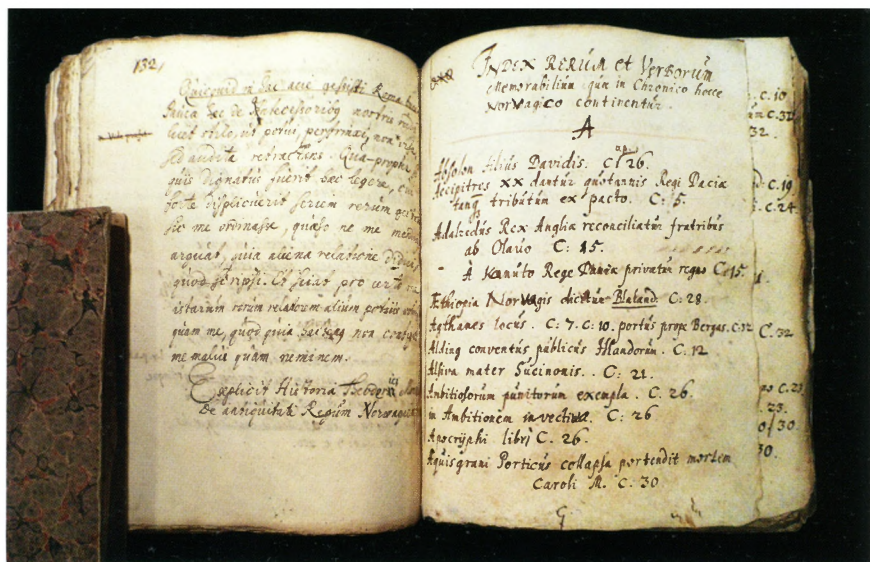 132,
Quicquid in hac
licet stilo, ut potui, perstrinxi, non visa
sed audita retractans. Qua-propter
quis dignatus fuerit haec legere, cui
forte displicuerit seriem rerum gesta
sic me ordinasse, quaeso ne me men
arguat, quia aliena relatione didici
quod scripsi. Et sciat pro certo me
istarum rerum relatorem alium potius
quam me, quod quia hactenus non contigit
me malui quam neminem.
Explicit Historia Theodorici
De antiquitate Regum Norwagien
INDEX RERUM et Verborum
Memorabilium quæ in Chronico hocce
Norvagico continentur.
A
Absolon filius Davidis. Cap. 26.
Accipitres XX dantur quotannis Regi Daciæ
tanq tributum ex pacto. C: 5.
Adalredus Rex Angliæ reconciliatur fratribus
ab Olavo C: 15.
A Kanuto Rege Daniæ privatur regno C. 15.
Æthiopia Norvagis dicitur Blaland. C: 28.
Agthanes locus. C: 7. C: 10. portus prope Bergas. C. 32
Alding conventus publicus Islandorum. C. 12
Alfiva mater Sueinonis. C: 21.
Ambitiosorum punitorum exempla. C. 26.
in Ambitionem invectiva. C: 26
Apocryphi libri C. 26.
Aquisgrani Porticus collapsa portendit mortem
Caroli M. C: 30
C. 10
C. 32
32.
C. 19
C. 24
C. 32
C. 23
23.
30.
30.